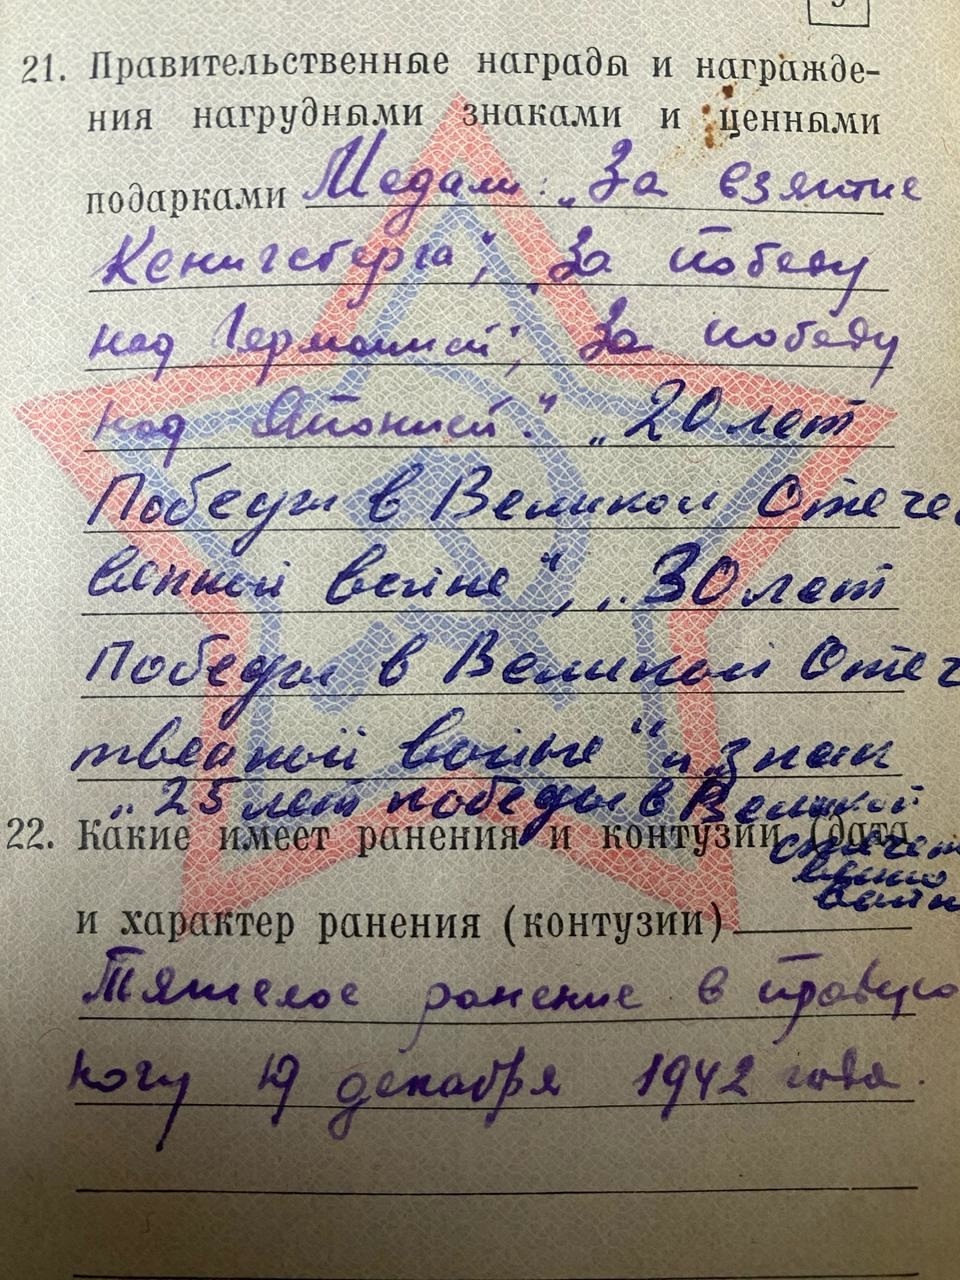 21. Правительственные награды и награжде-
ния нагрудными знаками и ценными
подарками Медали: „За взятие
Кенигсберга“, „За победу
над Германией“, За победу
над Японией.“ „20 лет
Победы в Великой Отечес
венной войне“, „30 лет
Победы в Великой Отеч
твенной войне“ и знак
„25 лет победы в Великой
отечест
венно
войн
22. Какие имеет ранения и контузии (дата
и характер ранения (контузии)
Тяжелое ранение в правую
ногу 19 декабря 1942 года.